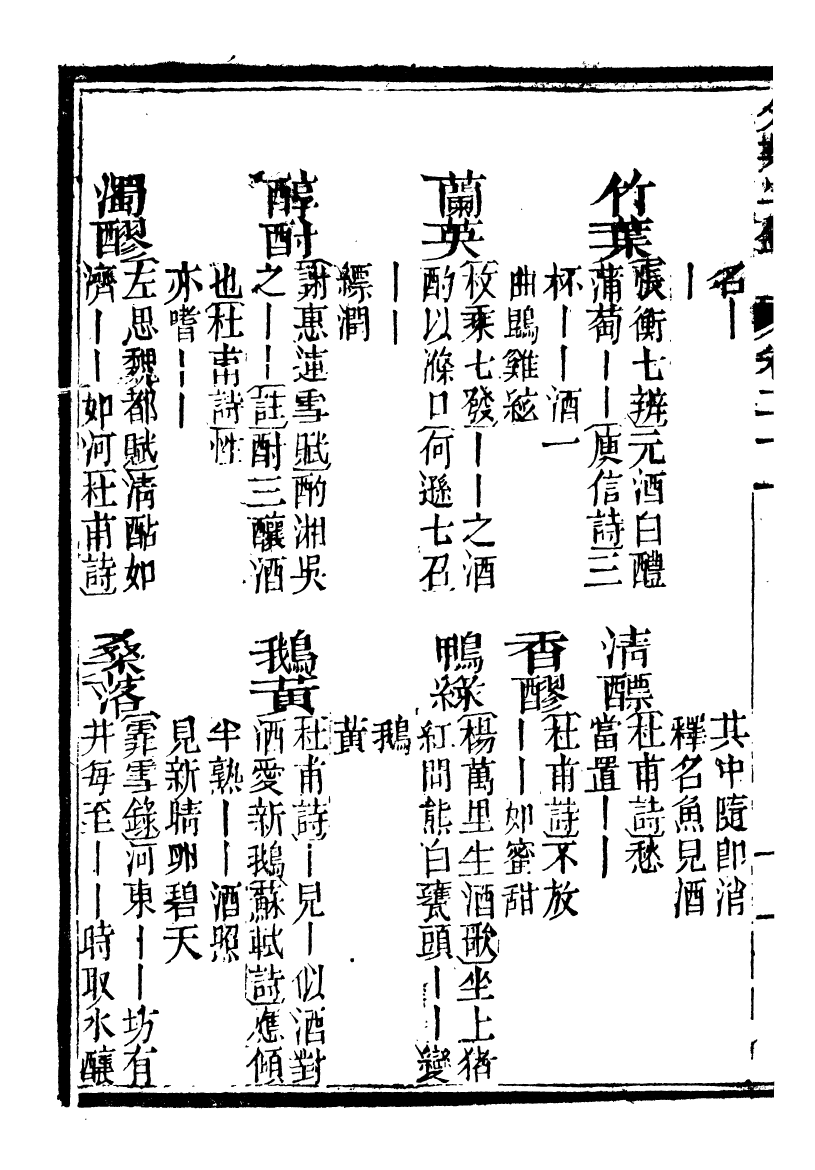 名丨
丨
竹葉
張衡七辨元酒白醴
蒲萄丨丨庾信詩三
杯丨丨酒一
曲鵾雞絃
蘭英
枚乘七發丨丨之酒
酌以滌口何遜七召
丨丨
縹澗
醇酎
謝惠連雪賦酌湘吳
之丨丨註酎三釀酒
也杜甫詩性
亦嗜丨丨
濁醪
左思魏都賦清酤如
濟丨丨如河杜甫詩
其中隨即消
釋名魚見酒
清醥
杜甫詩愁
當置丨丨
香醪
杜甫詩不放
丨丨如蜜甜
鴨綠
楊萬里生酒歌坐上猪
紅間熊白甕頭丨丨變
鵝
黃
鵝黃
杜甫詩丨見丨似酒對
酒愛新鵝蘇軾詩應傾
半熟丨丨酒照
見新晴卵碧天
桑落
霏雪錄河東丨丨坊有
井每至丨丨時取水釀